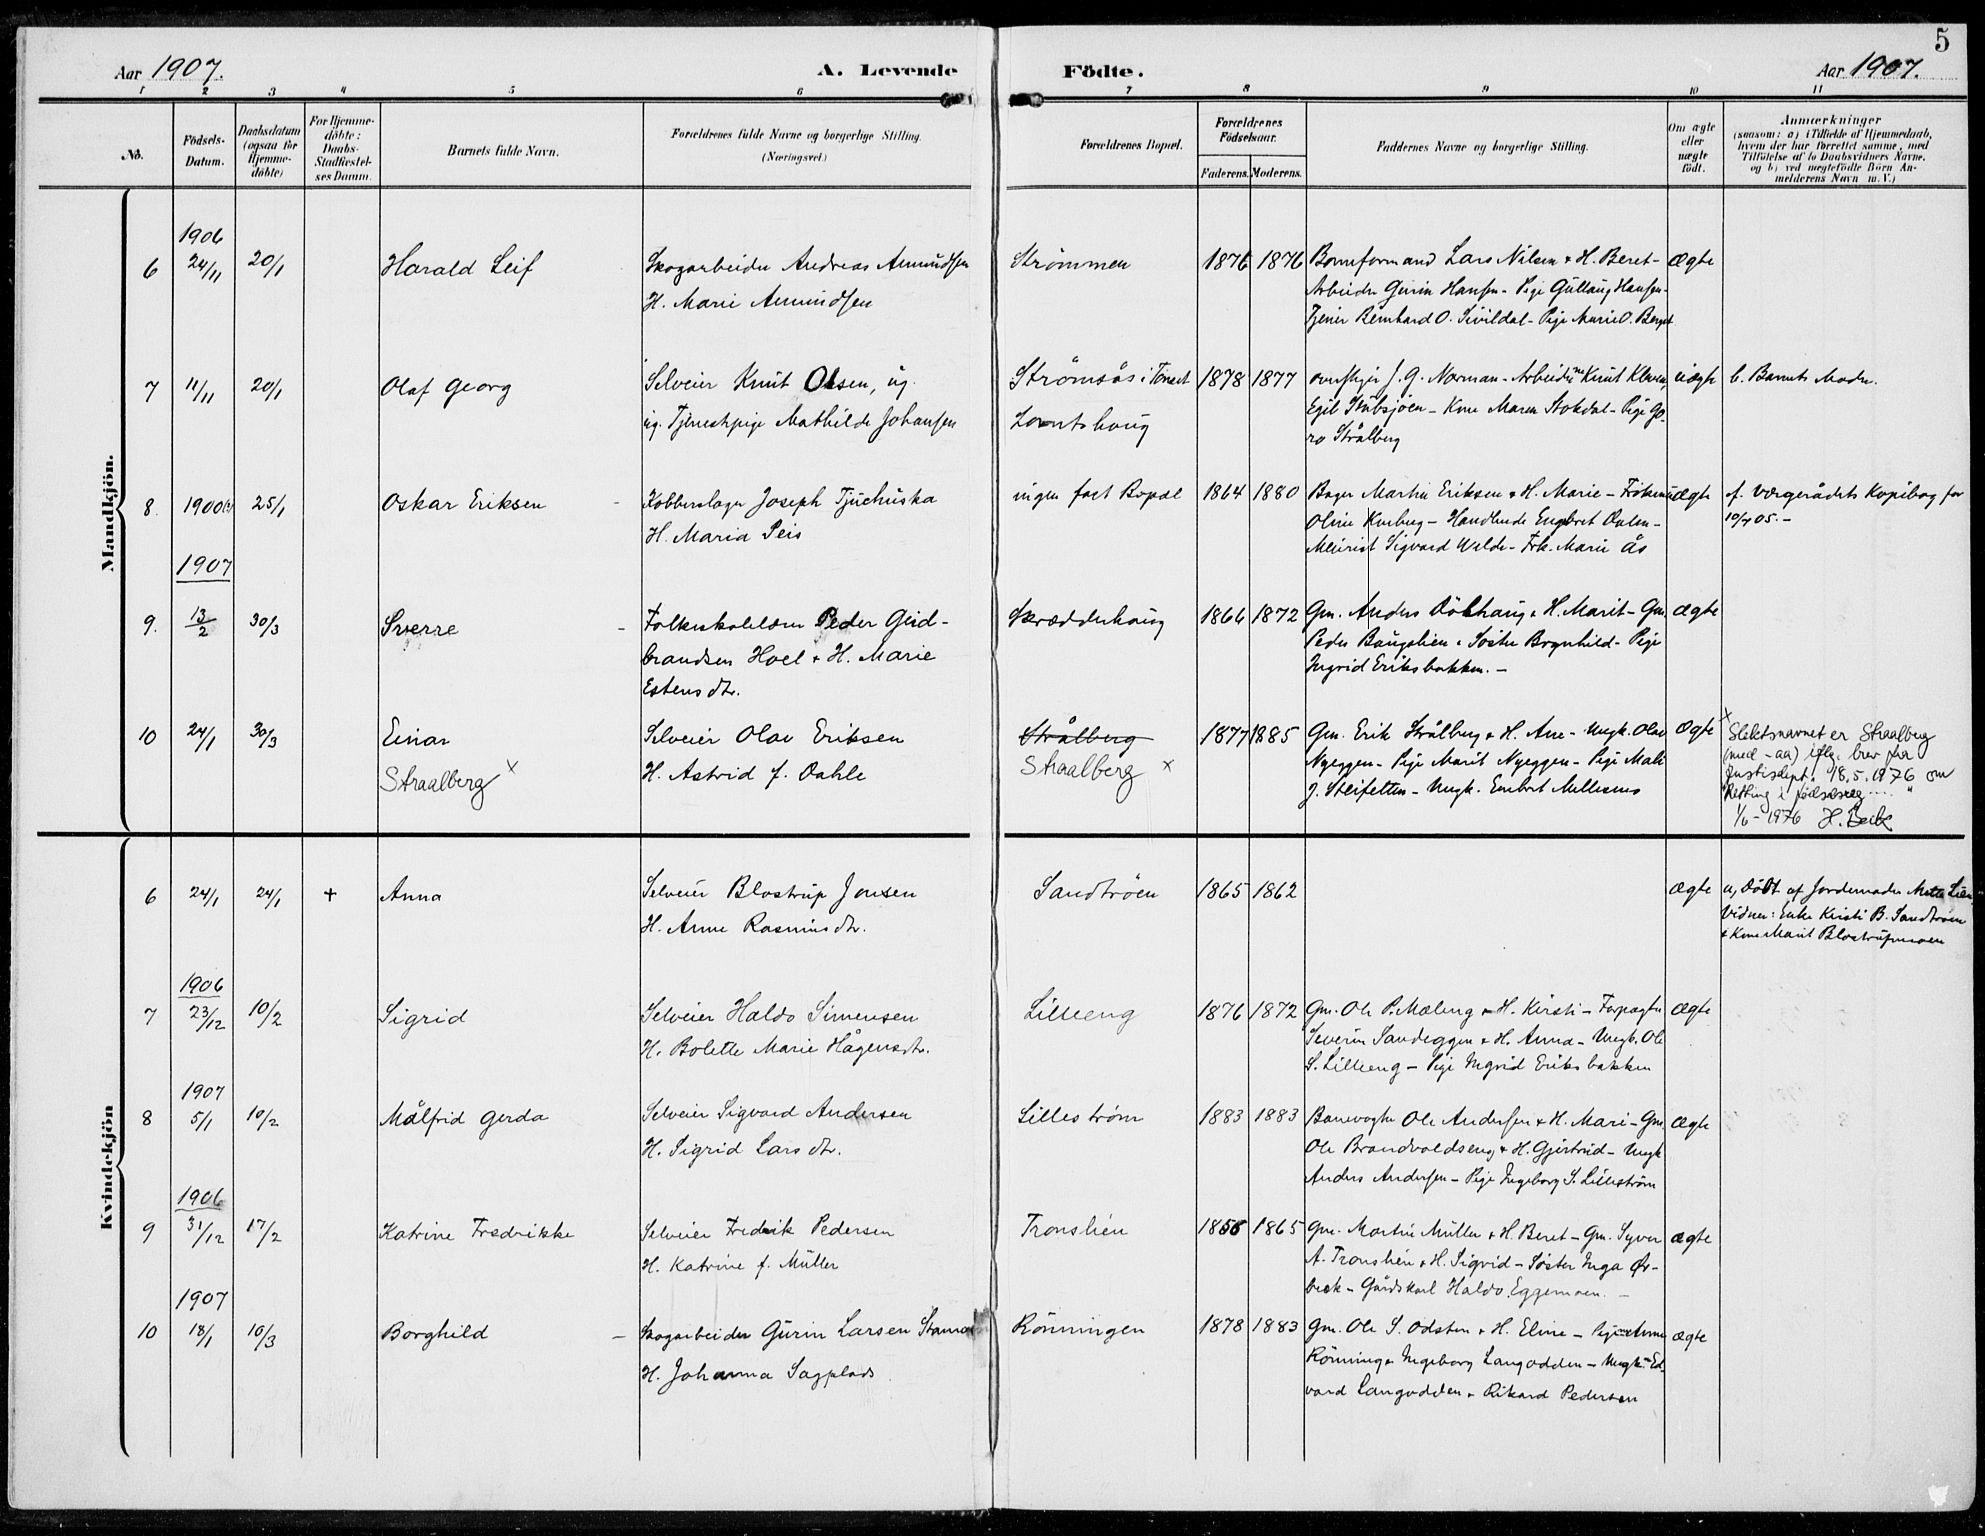 5
Aar 1907. A. Levende Födte. Aar 1907.
1 2 3 4 5 6 7 8 9 10 11
No. Födsels-Datum. Daabsdatum (ogsaa for Hjemmedöbte) For Hjemmedöbte: Daabs-Stadfæstelses Datum. Barnets fulde Navn. Forældrenes fulde Navne og borgerlige Stilling. (Næringsvei.) Forældrenes Bopæl. Forældrenes Födselsaar. Faderens. Moderens. Faddernes Navne og borgerlige Stilling. Om ægte eller uægte födt. Anmærkninger (saasom: a) i Tilfælde af Hjemmedaab, hvem der har forrettet samme, med Tilföielse af to Daabsvidners Navne, og b) ved uegtefödte Börn Anmelderens Navn m. V.)
Mandkjön.
1906
6 24/11 20/1 Harald Leif Skogarbeider Andreas Amundsen Strømmen 1876 1876 Lars Nilsen & H. Beret- Ægte
H. Marie Amundsen Arbeider Hansen - Pige Gullaug Hansen-
Tjener Bernhard O. Sivildal - Pige Marie O. Berget
7 11/11 20/1 Olaf Georg Selveier Knut Olsen, ug. Strömsås i Tönset 1878 1877 J. G. Norman - Arbeider Knut uægte b. Barnets Moder.
ug. Tjenestepige Mathilde Johansen Lorntshaug Egil Stubsjöen - Kone Maren Stokdal - Pige Go-
ro Strålberg
8 1900 25/1 Oskar Eriksen Kobberslager Joseph Tjuchuska ingen fast Bopæl 1864 1880 Bager Martin Eriksen & H. Marie - Fröken uægte f. Værgerådets Kopibog for
H. Maria Peis Oline - Handlende Engebret Dalen - 10/4 05. -
Meierist Sigvard - Frk. Marie Ås
1907
9. 13/2 30/3 Sverre Folkeskolelærer Peder Gud- Skrædderhaug 1866 1872 Gm. Anders & H. Marit - Gm. Ægte
brandsen Hoel & H. Marie Peder Baugslien & Søster Brynhild - Pige
Estensdtr. Ingrid Eriksbakken. -
10 24/1 30/3 Einar Selveier Olav Eriksen Strålberg 1877 1885 Gm. Erik Strålberg & H. Ane - Ungk. Olav Ægte x Slektsnavnet er Straalberg
Straalberg x H. Astrid f. Dahle Straalberg x Nyeggen - Pige Marit Nyeggen - Pige Mali (med -aa) iflg. brev fra
J. - Ungk. Embret Mellesmo Justisdept. 18.5.1976 om
"Retting i fødselsreg...."
1/6 - 1976 H. Beck
Kvindekjön
6 24/1 24/1 + Anna Selveier Blostrup Jonsen Sandtröen 1865 1862 Ægte a, Döbt af Jordemoder Lien
H. Anne Rasmusdtr. Vidner: Enke Kirsti B. Sandtröen
& Kone Marit Blostrupmoen
1906
7 23/12 10/2 Sigrid Selveier Haldo Simensen Lilleeng 1876 1872 Gm. Ole P. Mæleng & H. Kirsti - Forpagter Ægte
H. Bolette Marie Hågensdtr. Severin Sandeggen & H. Anna - Ungk. Ole
S. Lilleeng - Pige Ingrid Eriksbakken
1907
8 5/1 10/2 Målfrid Gerda Selveier Sigvard Andersen Lilleström 1883 1883 Banevogter Ole Andersen & H. Mari - Gm Ægte
H. Sigrid Larsdtr. Ole Brandvoldseng & H. Gjertrud - Ungk
Anders Andersen - Pige Ingeborg S. Lilleström
1906
9 31/12 17/2 Katrine Fredrikke Selveier Fredrik Pedersen Tronslien 1856 1865 Gm. Martin Müller & H. Beret - Gm. Syver Ægte
H. Katrine f. Müller A. Tronslien & H. Sigrid - Søster Inga Ør-
beck - Gårdskarl Haldo Eggemoen. -
1907
10 18/1 10/3 Borghild Skogarbeider Gurin Larsen Rönningen 1878 1883 Gm. Ole S. Odsten & H. Eline - Pige Anne Ægte
H. Johanna Sagplads Rönning & Ingeborg Langodden - Ungk. Ed-
vard Langodden & Rikard Pedersen